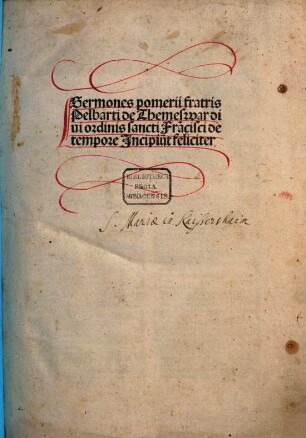 Sermones pomerii fratris
Pelbarti de Themeswar di
ui ordinis sancti Frācisci de
tempore Incipiūt feliciter
BIBLIOTHECA
REGIA
MONACENSIS
S. Mariæ in Kaissershaim